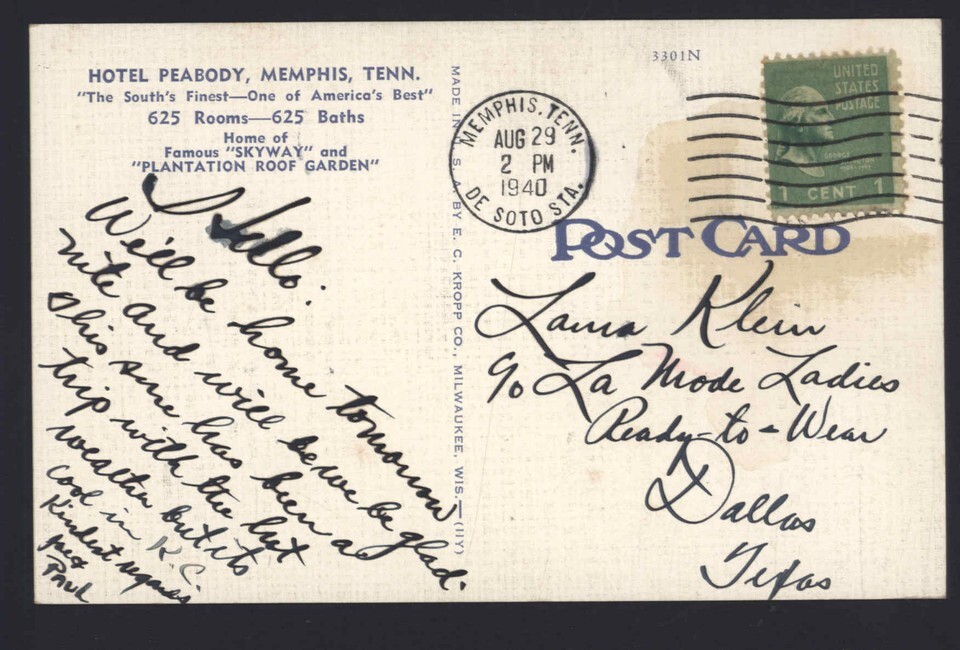 HOTEL PEABODY, MEMPHIS, TENN.
"The South's Finest—One of America's Best"
625 Rooms—625 Baths
Home of
Famous "SKYWAY" and
"PLANTATION ROOF GARDEN"
Hello:
We'll be home tomorrow
nite and will be we be glad.
This sure has been a
trip with the hot
weather but its
cool in K.C.
Kindest regards
Paul
MADE IN U. S. A. BY E. C. KROPP CO., MILWAUKEE, WIS. (IIY)
3301N
MEMPHIS, TENN.
AUG 29
2 PM
1940
DE SOTO STA.
UNITED
STATES
POSTAGE
GEORGE
WASHINGTON
1 CENT 1
POST CARD
Laura Klein
c/o La Mode Ladies
Ready-to-Wear
Dallas
Texas